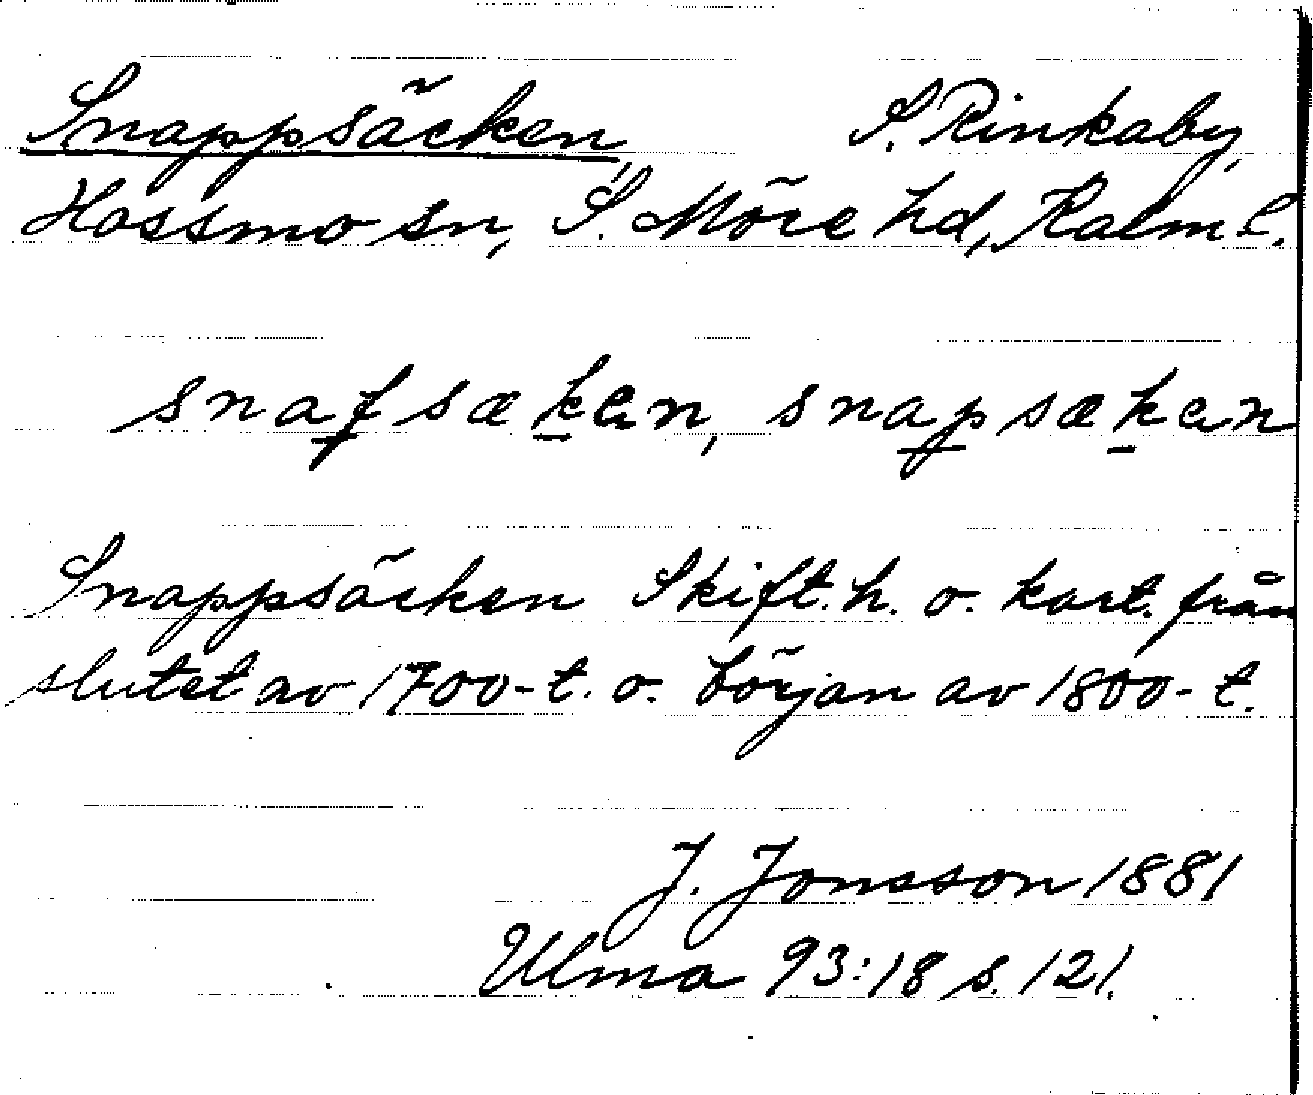 Snappsäcken, S. Rinkaby,
Hossmo sn, S. Möre hd, Kalm l.
snafsækɐn, snapsækɐn
Snappsäcken Skift. h. o. kart. från
slutet av 1700-t. o. början av 1800-t.
J. Jonsson 1881
Ulma 93:18 s. 121.